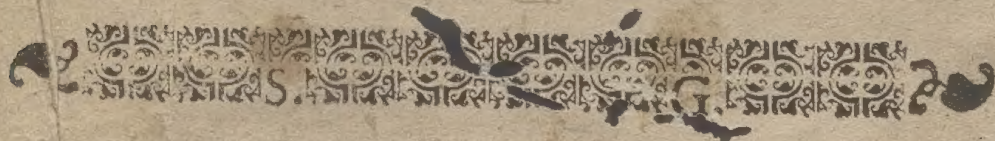 S. G.